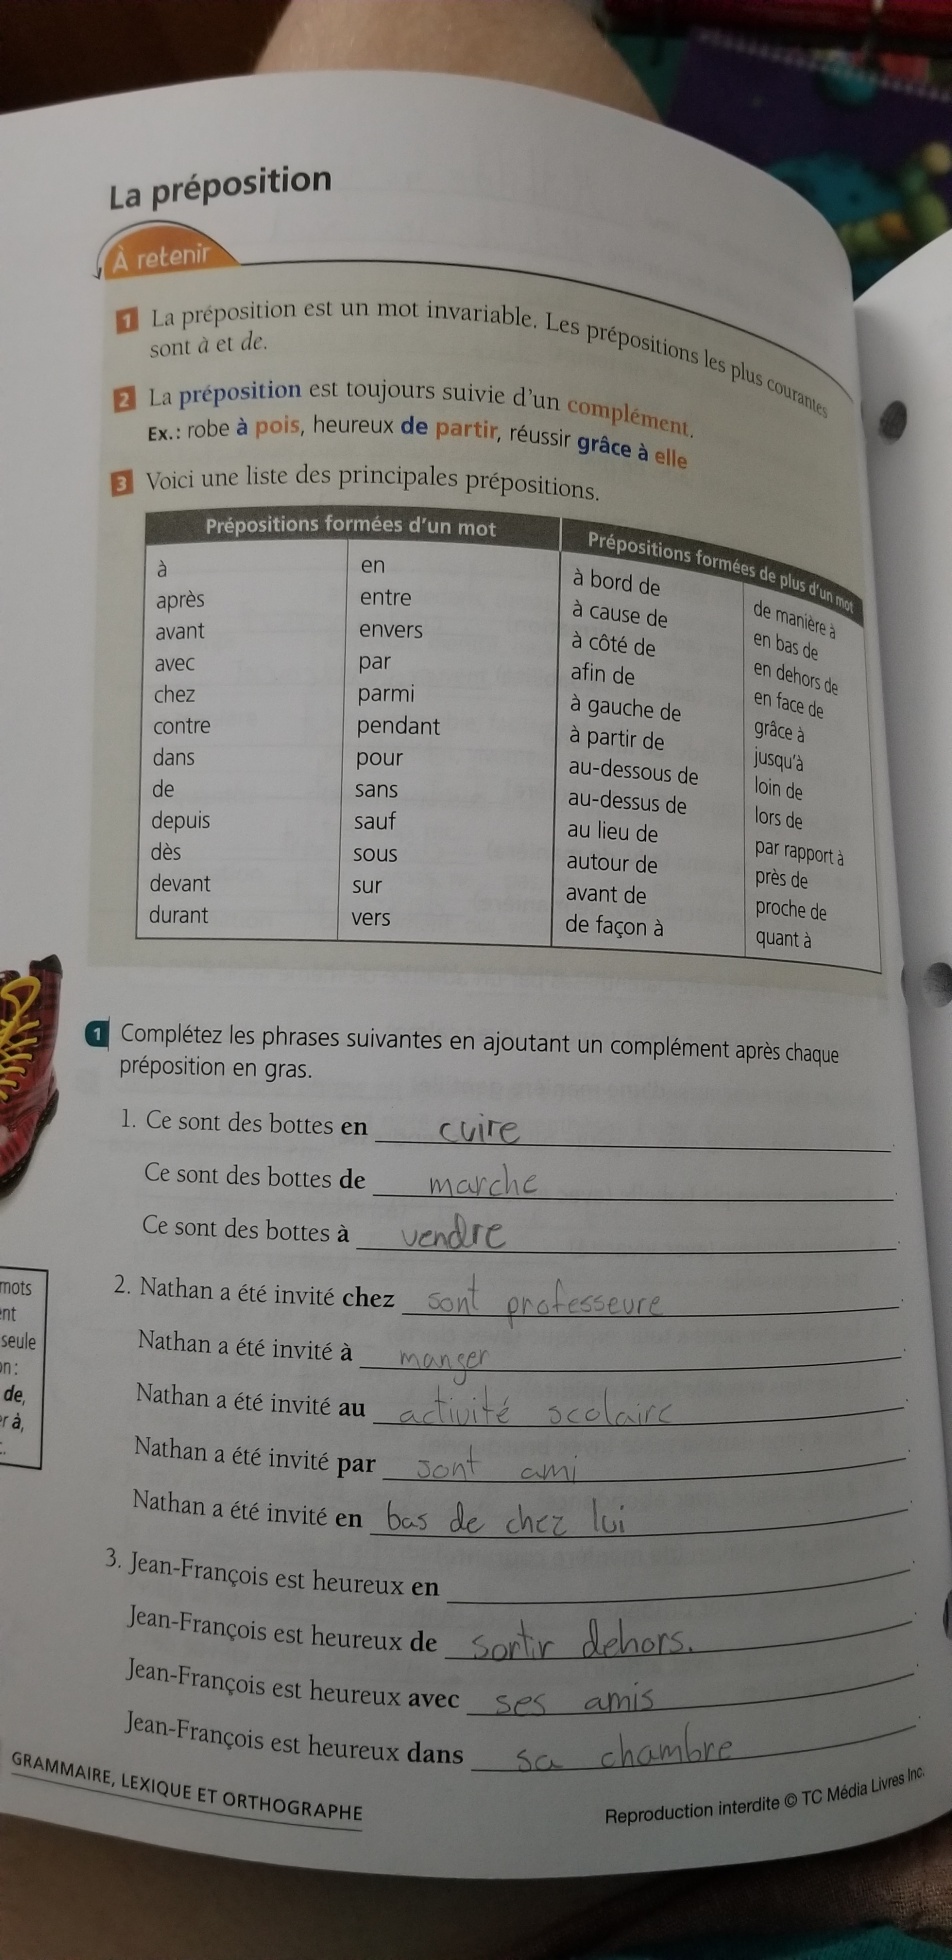 La préposition
À retenir
1 La préposition est un mot invariable. Les prépositions les plus courantes
sont à et de.
2 La préposition est toujours suivie d'un complément.
Ex.: robe à pois, heureux de partir, réussir grâce à elle
3 Voici une liste des principales prépositions.
Prépositions formées d'un mot Prépositions formées de plus d'un mot
à en à bord de de manière à
après entre à cause de en bas de
avant envers à côté de en dehors de
avec par afin de en face de
chez parmi à gauche de grâce à
contre pendant à partir de jusqu'à
dans pour au-dessous de loin de
de sans au-dessus de lors de
depuis sauf au lieu de par rapport à
dès sous autour de près de
devant sur avant de proche de
durant vers de façon à quant à
1 Complétez les phrases suivantes en ajoutant un complément après chaque
préposition en gras.
1. Ce sont des bottes en cuire.
Ce sont des bottes de marche.
Ce sont des bottes à vendre.
2. Nathan a été invité chez sont professeure.
Nathan a été invité à manger.
Nathan a été invité au activité scolaire.
Nathan a été invité par sont ami.
Nathan a été invité en bas de chez lui.
3. Jean-François est heureux en .
Jean-François est heureux de sortir dehors..
Jean-François est heureux avec ses amis.
Jean-François est heureux dans sa chambre.
mots
seule
de,
GRAMMAIRE, LEXIQUE ET ORTHOGRAPHE
Reproduction interdite © TC Média Livres Inc.